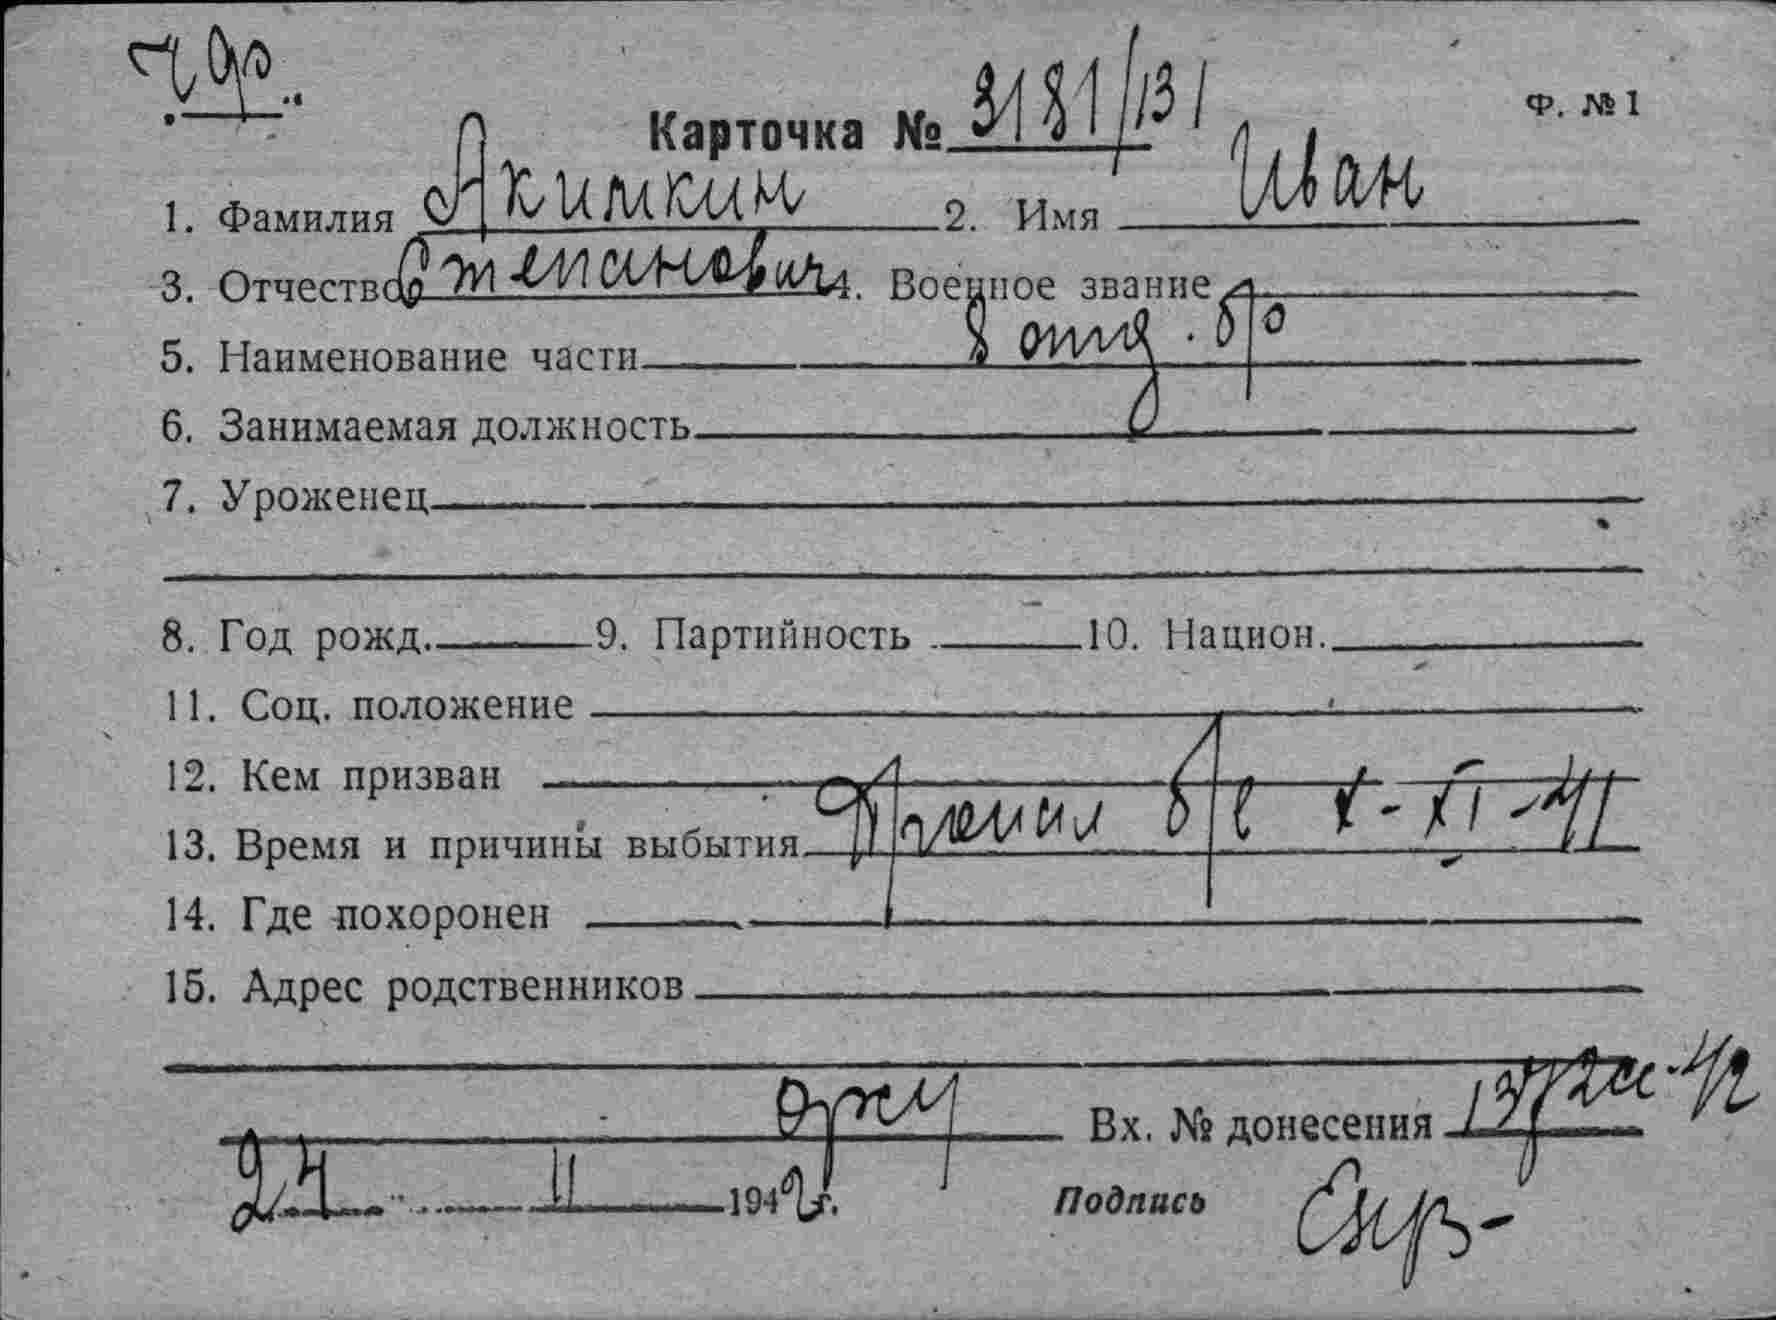 Карточка № 3181/131
Ф. № 1
1. Фамилия Акимкин 2. Имя Иван
3. Отчество Степанович 4. Военное звание
5. Наименование части 8 отд. бр
6. Занимаемая должность
7. Уроженец
8. Год рожд. 9. Партийность 10. Национ.
11. Соц. положение
12. Кем призван
13. Время и причины выбытия Пропал б/в X-XI-41
14. Где похоронен
15. Адрес родственников
Вх. № донесения
24 II 1942 г. Подпись